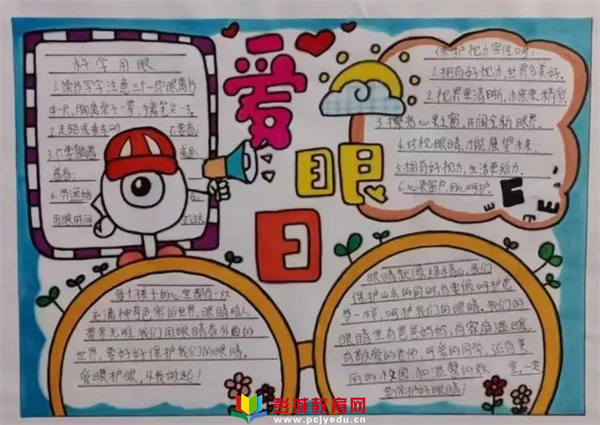 科学用眼
1.读书写字注意三个一,即眼离书
本一尺,胸离桌子一拳,手离笔尖一寸。
2.走路或乘车时
看书;
用眼时间
爱眼日
保护视力宣传口号:
1.拥有好视力,世界多美好。
2.视界更清晰,未来更精彩
3.擦亮心灵之窗,开阔全新眼界。
4.珍视眼睛,才能展望未来。
5.拥有好视力,生活更给力。
6.心灵窗户,用心呵护。
E
每个孩子的心里都有一双
充满神奇色彩的世界,眼睛给人
带来光明,我们用眼睛看外面的
世界,要好好保护我们的眼睛。
爱眼护眼,从我做起!
眼睛就像绿水青山,我们
保护山水的同时,也要像呵护它
一样,呵护我们的眼睛。我们的
眼睛里有爸爸妈妈,有家庭温暖,
有敬爱的老师,可爱的同学,还有美
丽的校园和温馨的教室,一定
要保护好眼睛!
彭城教育网
www.pcjyedu.cn